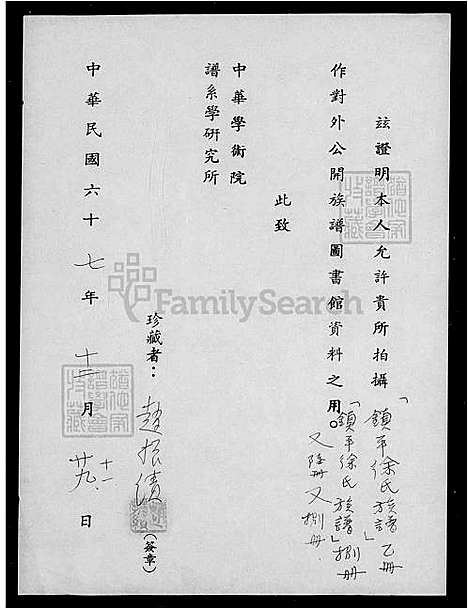 茲證明本人允許貴所拍攝「鎮平徐氏族譜」乙冊
「鎮平徐氏族譜」捌冊
又陸冊又捌冊
作對外公開族譜圖書館資料之用。
此致
中華學術院
譜系學研究所
珍藏者：趙振績
（簽章）
中華民國六十七年十二月廿九日
十一
FamilySearch